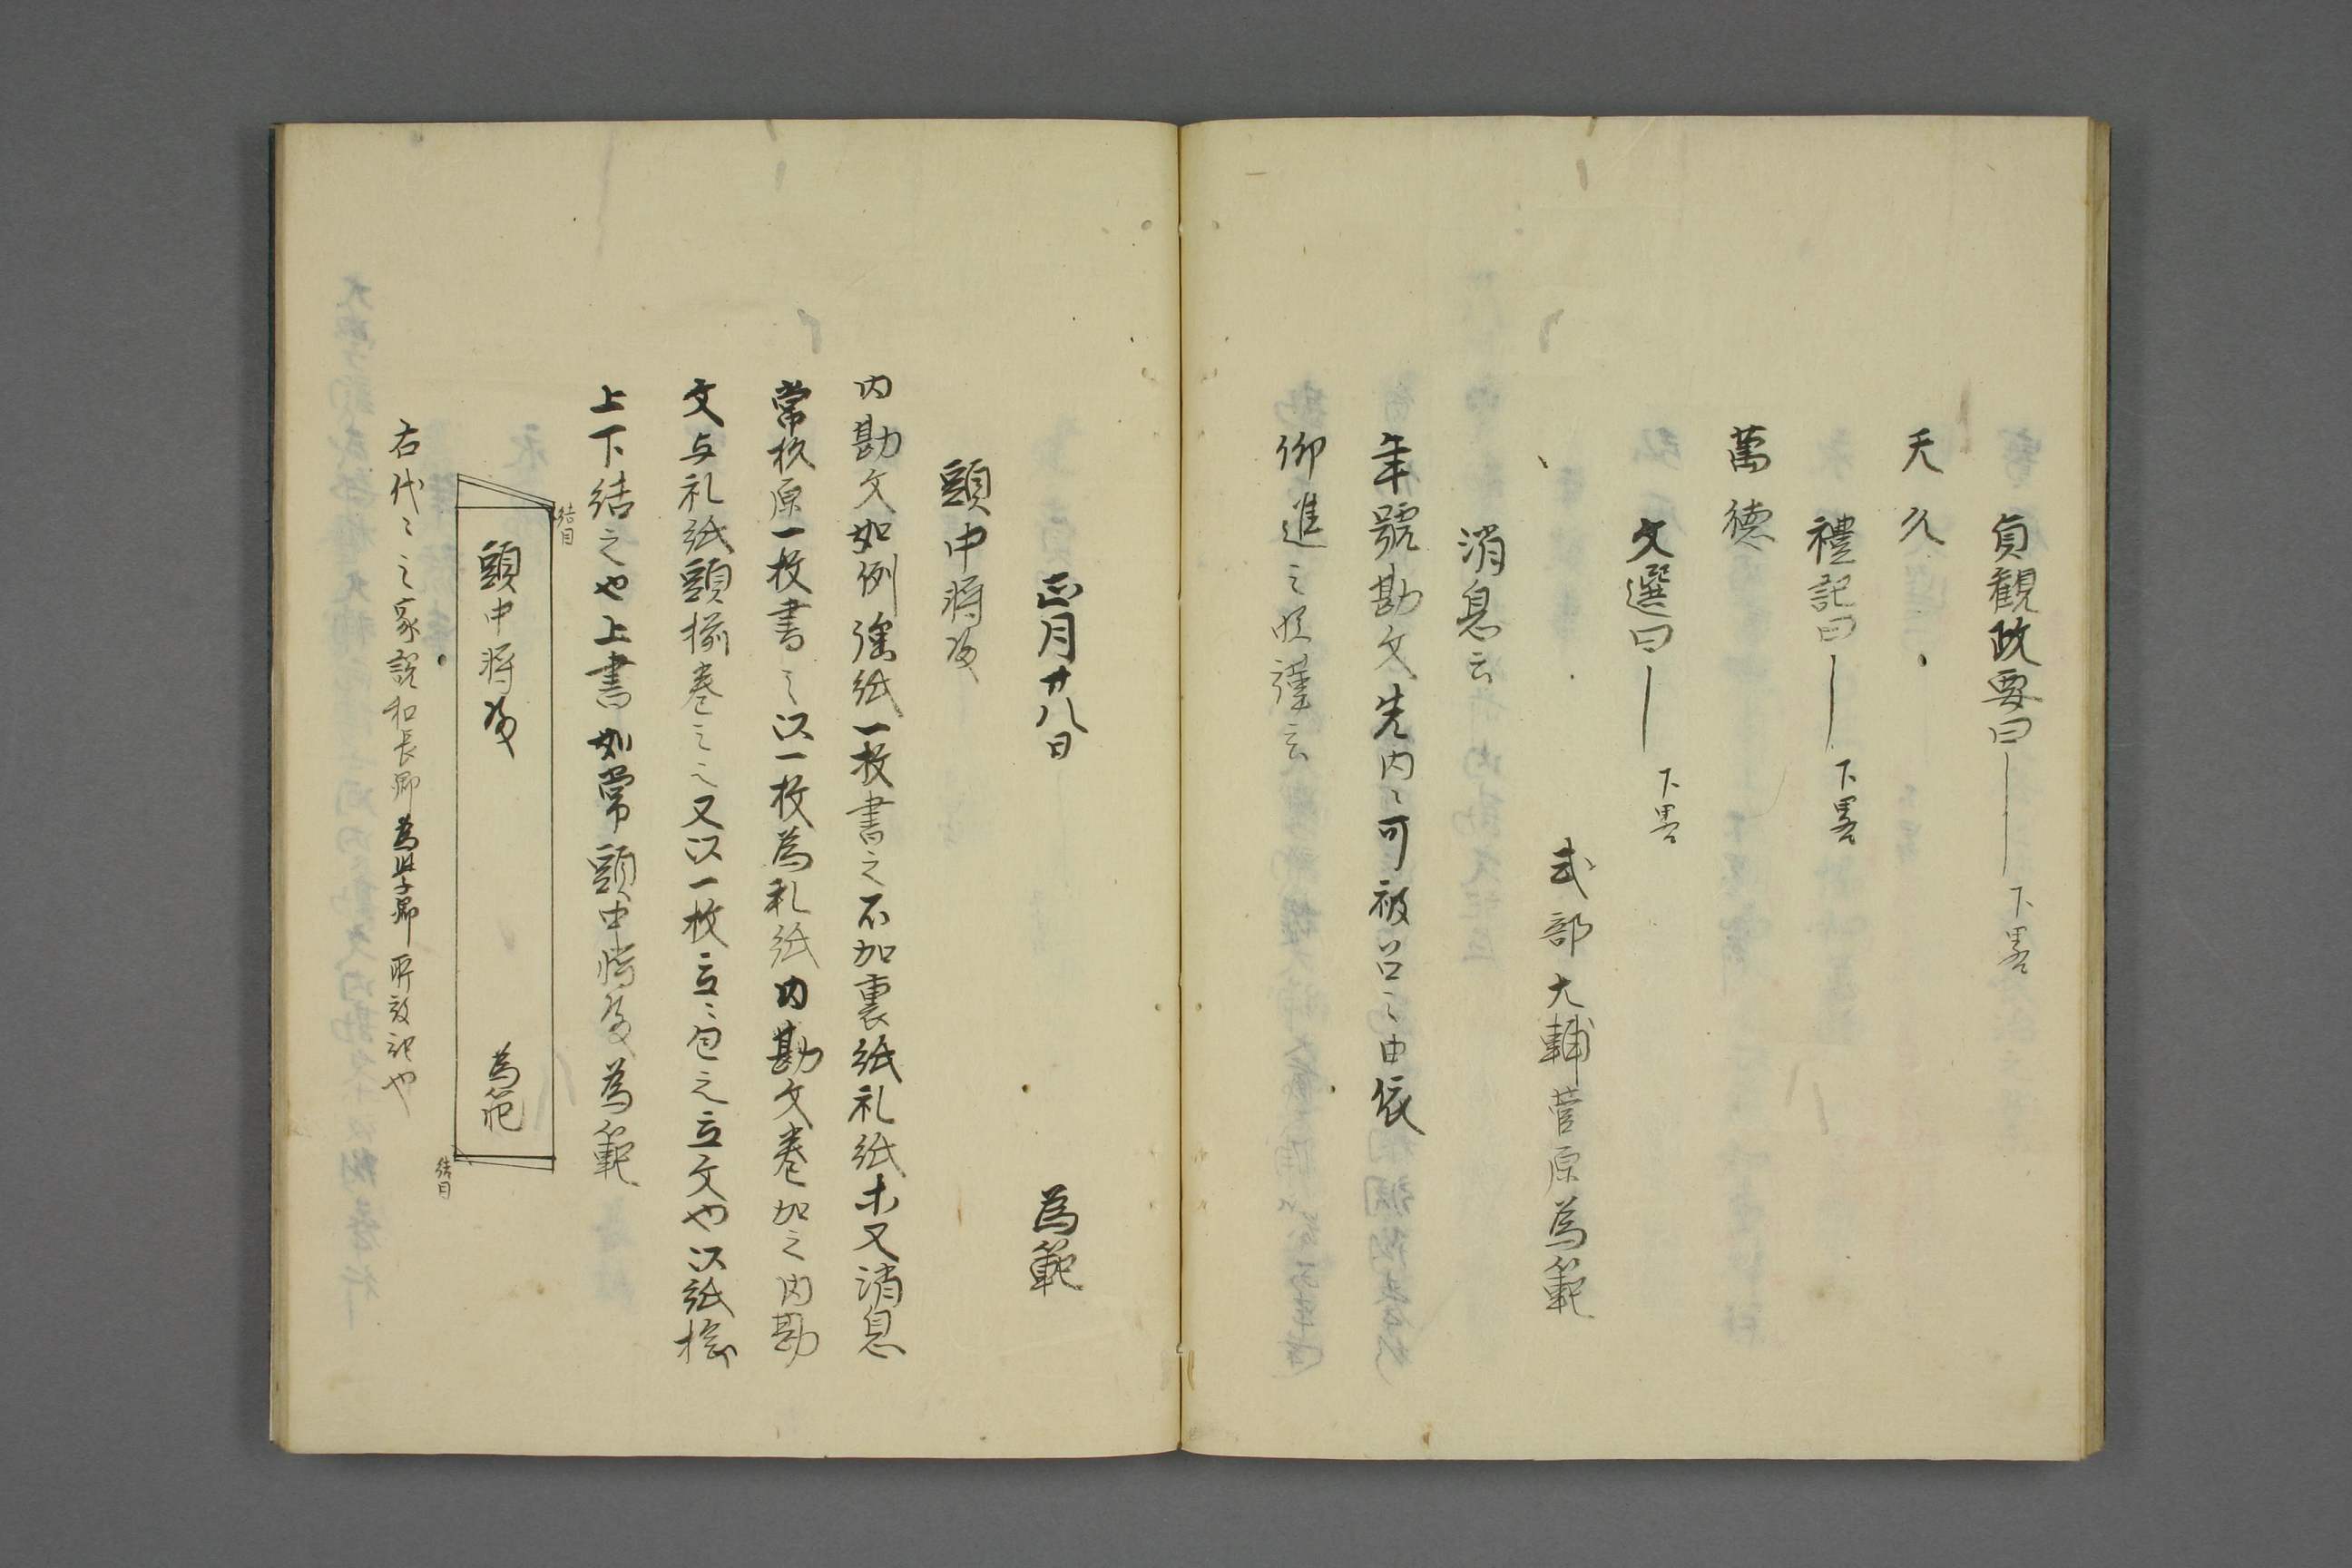 貞観政要曰 下畧
天久
禮記曰 下畧
萬徳
文選曰 下畧
式部大輔菅原為範
消息云
年號勘文先内〻可被召之由依
仰進之候謹言
正月廿八日 為範
頭中将殿
内勘文如例強紙一枚書之不加裏紙礼紙木又消息
常杉原一枚書之以一枚為礼紙内勘文巻加之内勘
文与礼紙頭揃巻之〻又以一枚立〻包之立文也以紙捻
上下結之也上書如常頭中将殿為範
結目
頭中将殿 為範
結目
右代〻之家説和長卿為学卿所被記也